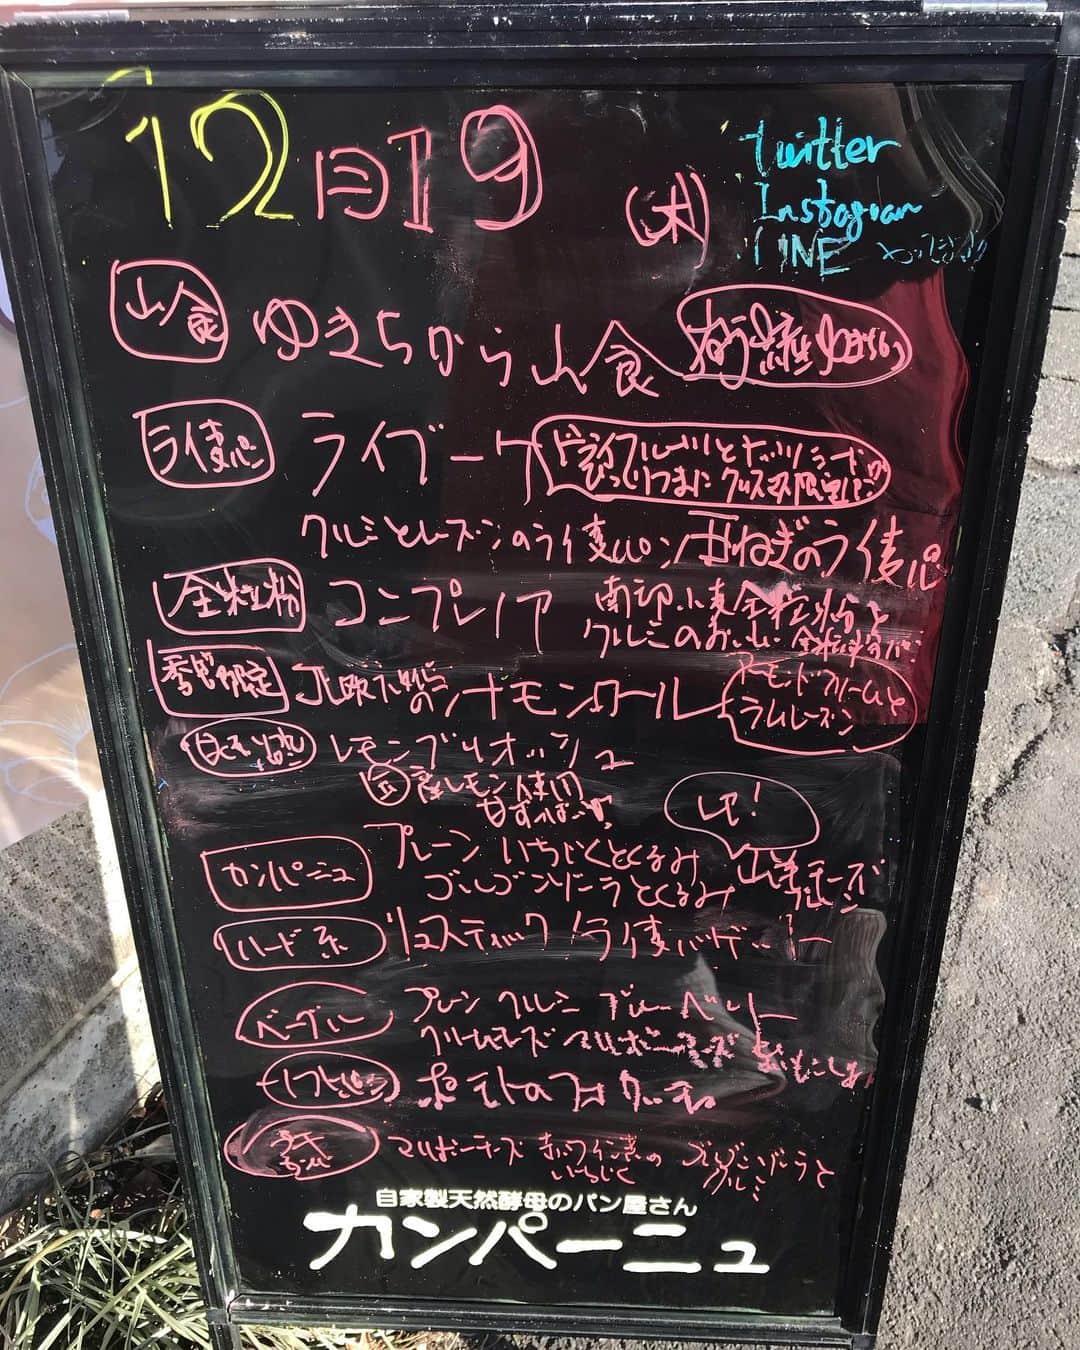 12月19
(木)
Twitter
Instagram
LINE やってます
山食
ゆきちから山食
ライ麦パン
ライブーケ
ドライフルーツとナッツ
ぎっしりつまった クリスマス限定パン
クルミとレーズンのライ麦パン 西ねぎのライ麦パン
全粒粉
コンプレノア
南部小麦全粒粉と
クルミのおいしい 全粒粉パン
季節限定
北欧のシナモンロール
アーモンドクリームと
ラムレーズン
レモンブリオッシュ
産レモン使用
甘ずっぱい
カンパーニュ
プレーン いちじくとくるみ
ゴルゴンゾーラとくるみ
山羊チーズ
プレーン
ハード系
リュスティック ライ麦バゲット
ベーグル
プレーン クルミ ブルーベリー
クリームチーズ マルボーチーズ
ソフトパン
ポテトのフォカッチャ
マルボーチーズ 赤ワイン煮の
いちじく
ゴルゴンゾーラと
クルミ
自家製天然酵母のパン屋さん
カンパーニュ